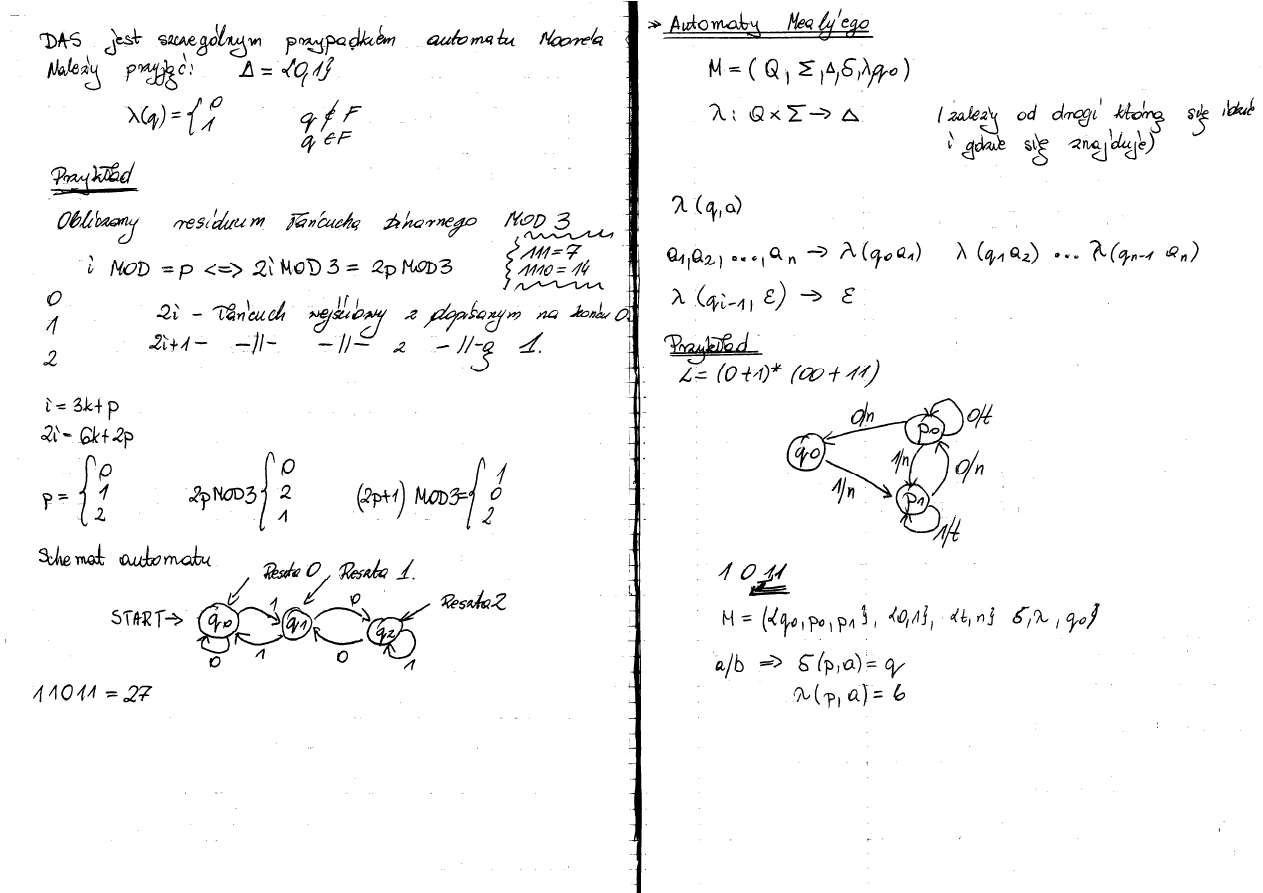 DAS jest szczególnym przypadkiem automatu Moore'a
Należy przyjąć: Δ = {0,1}
λ(q) = { 0 q ∉ F
1 q ∈ F
Przykład
Obliczamy residuum łańcucha binarnego MOD 3
111 = 7
1110 = 14
i MOD = p <=> 2i MOD 3 = 2p MOD3
0
1
2
2i - łańcuch wejściowy z dopisanym na końcu 0.
2i+1 - -||- -||- z -||-ą 1.
i = 3k+p
2i = 6k+2p
p = { 0 1 2
2p MOD3 { 0 2 1
(2p+1) MOD3 = { 1 0 2
Schemat automatu
Reszta 0, Reszta 1.
Reszta 2
START → q0 1 q1 0 q2
0 1 0 1
11011 = 27
» Automaty Mealy'ego
M = (Q, Σ, Δ, δ, λ q0)
λ : Q × Σ → Δ (zależy od drogi którą się idzie
i gdzie się znajduje)
λ (q, a)
a1, a2, ..., an → λ(q0 a1) λ (q1 a2) ... λ(qn-1 an)
λ (qi-1, ε) → ε
Przykład
L = (0+1)* (00 + 11)
0/n p0 0/t
q0 1/n 0/n
1/n p1
1/t
1 0 11
M = ({q0, p0, p1}, {0,1}, {t,n} δ, λ, q0}
a/b => δ(p,a) = q
λ(p,a) = b